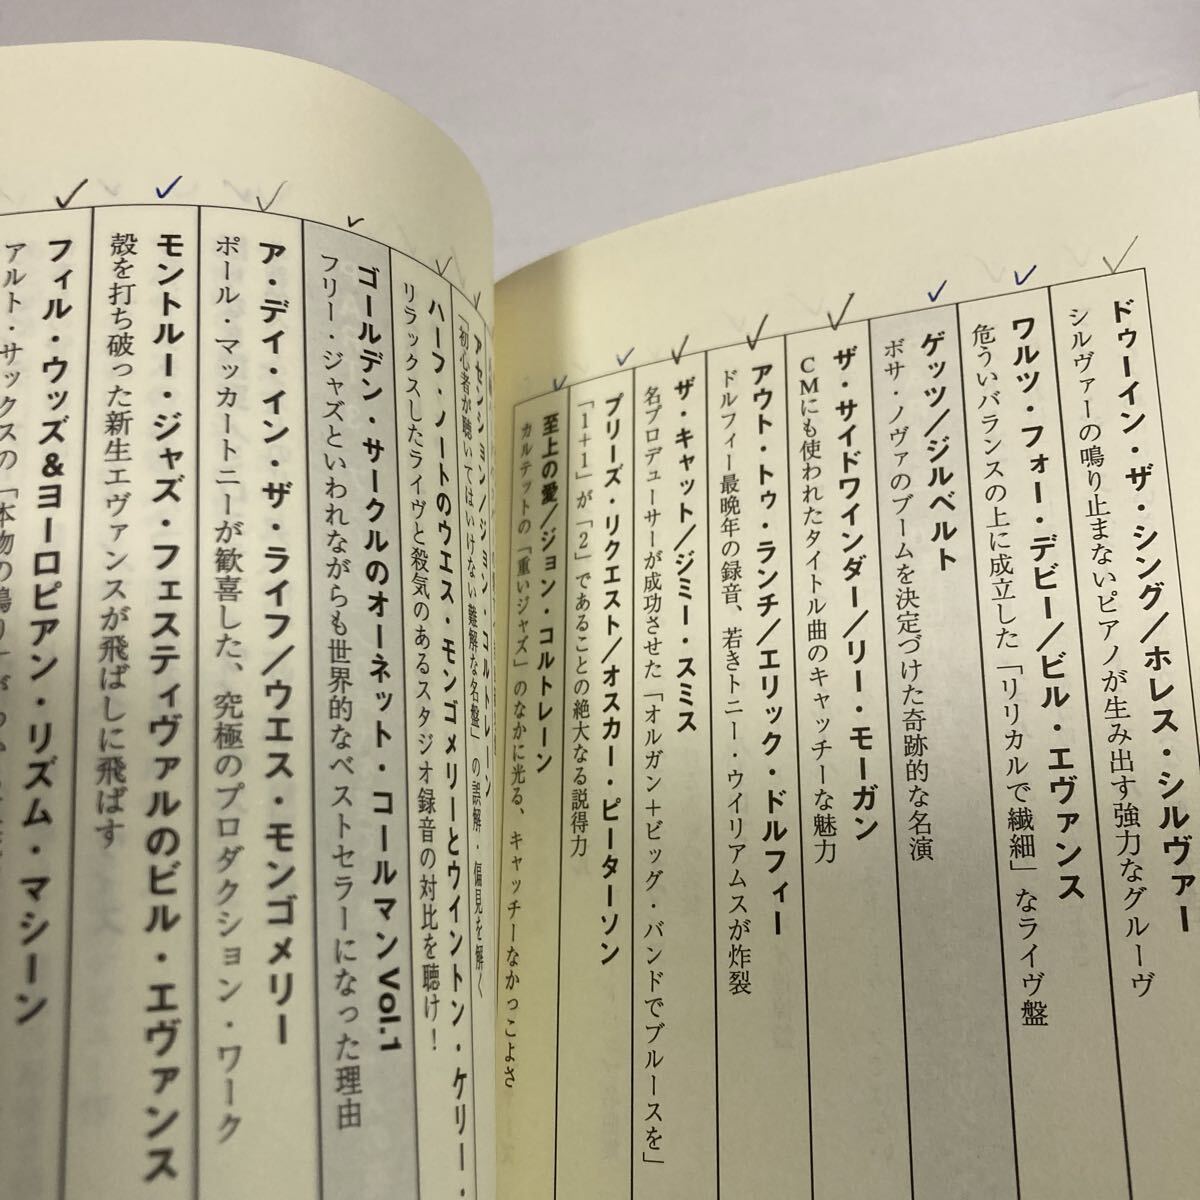 ドゥーイン・ザ・シング/ホレス・シルヴァー
シルヴァーの鳴り止まないピアノが生み出す強力なグルーヴ
ワルツ・フォー・デビー/ビル・エヴァンス
危ういバランスの上に成立した「リリカルで繊細」なライヴ盤
ゲッツ/ジルベルト
ボサ・ノヴァのブームを決定づけた奇跡的な名演
ザ・サイドワインダー/リー・モーガン
CMにも使われたタイトル曲のキャッチーな魅力
アウト・トゥ・ランチ/エリック・ドルフィー
ドルフィー最晩年の録音、若きトニー・ウイリアムスが炸裂
ザ・キャット/ジミー・スミス
名プロデューサーが成功させた「オルガン+ビッグ・バンドでブルースを」
プリーズ・リクエスト/オスカー・ピーターソン
「1+1」が「2」であることの絶大なる説得力
至上の愛/ジョン・コルトレーン
カルテットの「重いジャズ」のなかに光る、キャッチーなかっこよさ
アセンション/ジョン・コルトレーン
「初心者が聴いてはいけない難解な名盤」の誤解・偏見を解く
ハーフ・ノートのウエス・モンゴメリーとウイントン・ケリー・
リラックスしたライヴと殺気のあるスタジオ録音の対比を聴け!
ゴールデン・サークルのオーネット・コールマンVol.1
フリー・ジャズといわれながらも世界的なベストセラーになった理由
ア・デイ・イン・ザ・ライフ/ウエス・モンゴメリー
ポール・マッカートニーが歓喜した、究極のプロダクション・ワーク
モントルー・ジャズ・フェスティヴァルのビル・エヴァンス
殻を打ち破った新生エヴァンスが飛ばしに飛ばす
フィル・ウッズ&ヨーロピアン・リズム・マシーン
アルト・サックスの「本物の鳴り」が